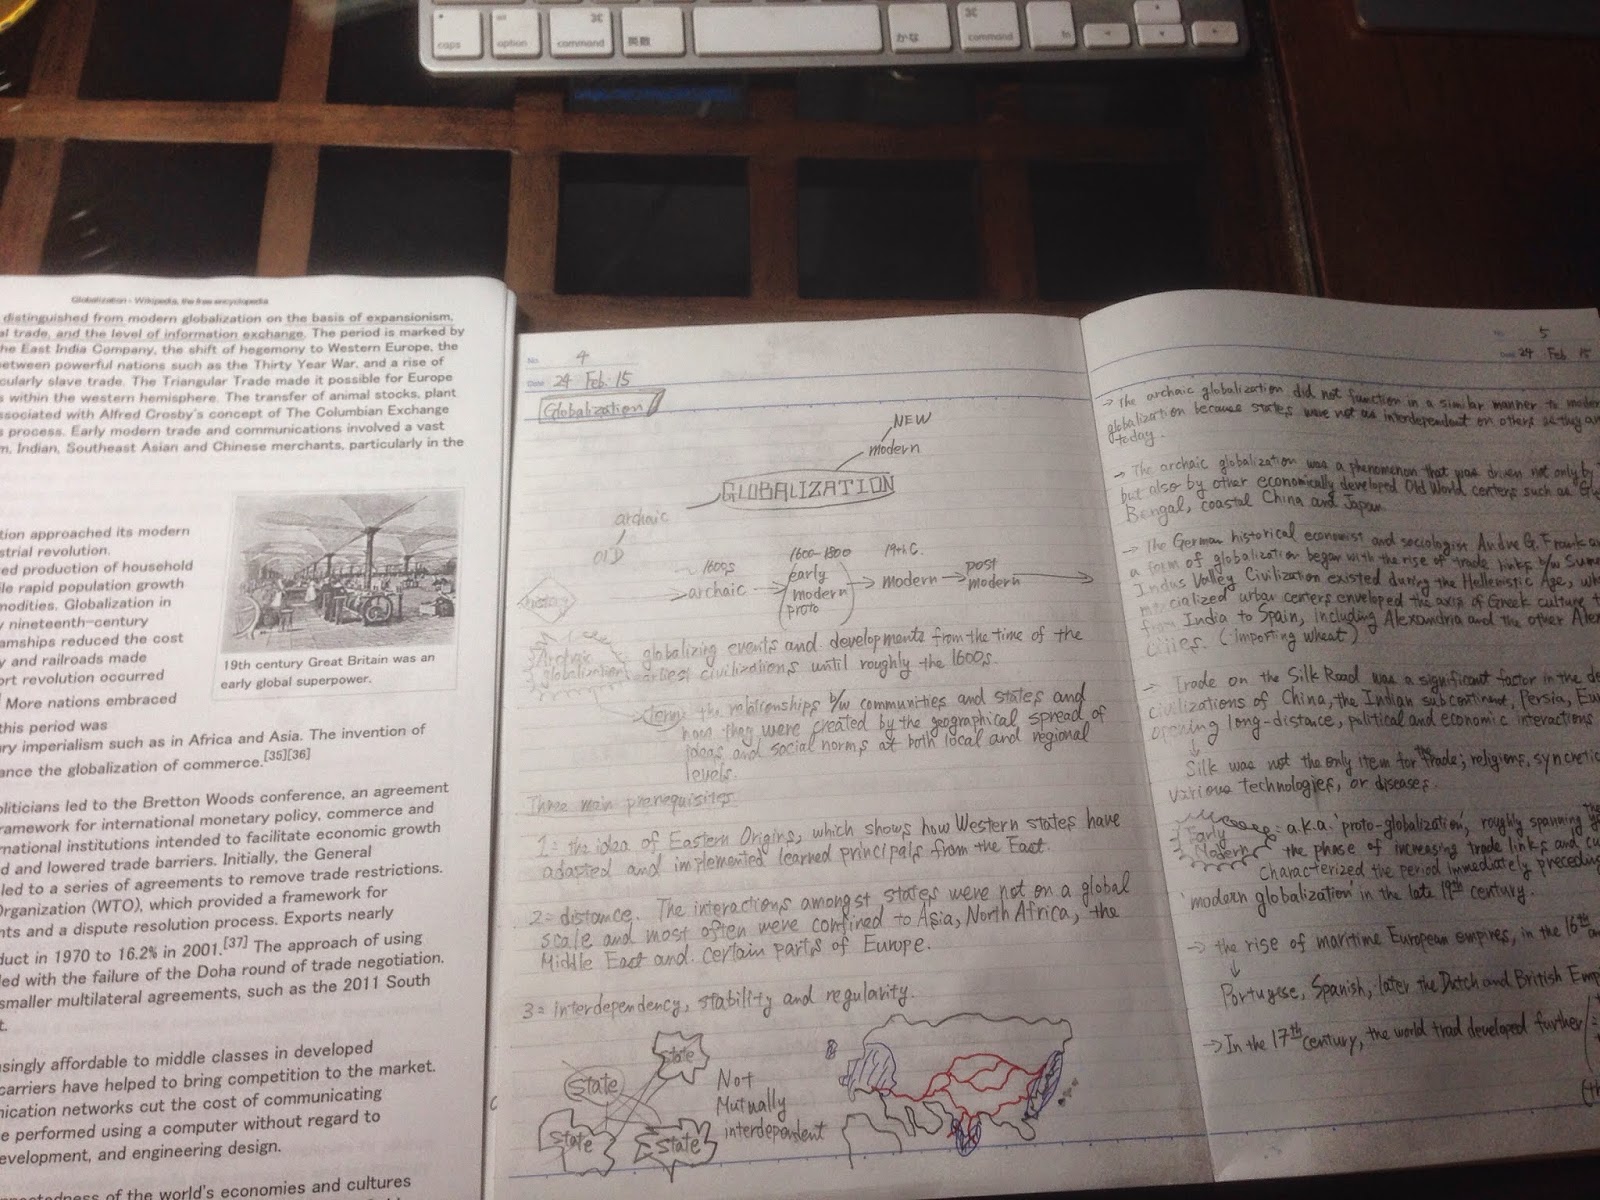 caps
option
⌘
command
英数
かな
⌘
command
fn
Globalization - Wikipedia, the free encyclopedia
distinguished from modern globalization on the basis of expansionism,
al trade, and the level of information exchange. The period is marked by
he East India Company, the shift of hegemony to Western Europe, the
etween powerful nations such as the Thirty Year War, and a rise of
cularly slave trade. The Triangular Trade made it possible for Europe
s within the western hemisphere. The transfer of animal stocks, plant
ssociated with Alfred Crosby's concept of The Columbian Exchange
s process. Early modern trade and communications involved a vast
n, Indian, Southeast Asian and Chinese merchants, particularly in the
tion approached its modern
strial revolution.
ed production of household
le rapid population growth
modities. Globalization in
y nineteenth-century
amships reduced the cost
y and railroads made
ort revolution occurred
More nations embraced
this period was
ry imperialism such as in Africa and Asia. The invention of
ance the globalization of commerce.[35][36]
19th century Great Britain was an
early global superpower.
oliticians led to the Bretton Woods conference, an agreement
ramework for international monetary policy, commerce and
rnational institutions intended to facilitate economic growth
d and lowered trade barriers. Initially, the General
led to a series of agreements to remove trade restrictions.
Organization (WTO), which provided a framework for
nts and a dispute resolution process. Exports nearly
duct in 1970 to 16.2% in 2001.[37] The approach of using
led with the failure of the Doha round of trade negotiation.
smaller multilateral agreements, such as the 2011 South
t.
singly affordable to middle classes in developed
carriers have helped to bring competition to the market.
nication networks cut the cost of communicating
e performed using a computer without regard to
evelopment, and engineering design.
nectedness of the world's economies and cultures
No. 4
Date 24 Feb. 15
Globalization
NEW
modern
GLOBALIZATION
archaic
OLD
history
~ 1600s
archaic
1600-1800
early
modern
proto
19th C.
modern
post
modern
Archaic
globalization
: globalizing events and developments from the time of the
earliest civilizations until roughly the 1600s.
term: the relationships b/w communities and states and
how they were created by the geographical spread of
ideas and social norms at both local and regional
levels.
Three main prerequisites
1 = the idea of Eastern Origins, which shows how Western states have
adapted and implemented learned principals from the East.
2 = distance. The interactions amongst states were not on a global
scale and most often were confined to Asia, North Africa, the
Middle East and certain parts of Europe.
3 = interdependency, stability and regularity.
State
State
State
State
Not
Mutually
interdependent
No. 5
Date 24 Feb 15
→ The archaic globalization did not function in a similar manner to modern
globalization because states were not as interdependent on others as they are
today.
→ The archaic globalization was a phenomenon that was driven not only by
but also by other economically developed Old World centers such as
Bengal, coastal China and Japan
→ The German historical economist and sociologist Andre G. Frank
a form of globalization began with the rise of trade links b/w Sume
Indus Valley Civilization existed during the Hellenistic Age, wh
urban centers enveloped the axis of Greek culture
from India to Spain, including Alexandria and the other Ale
cities. (importing wheat)
→ Trade on the Silk Road was a significant factor in the de
civilizations of China, the Indian subcontinent, Persia, Eu
opening long-distance, political and economic interactions
↓
Silk was not the only item for the trade; religions, syncretic
various technologies, or diseases.
Early
Modern
: a.k.a. 'proto-globalization', roughly spanning the
the phase of increasing trade links and cu
characterized the period immediately preceding
'modern globalization' in the late 19th century.
→ the rise of maritime European empires, in the 16th
↓
Portugese, Spanish, later the Dutch and British Emp
→ In the 17th century, the world trad developed further